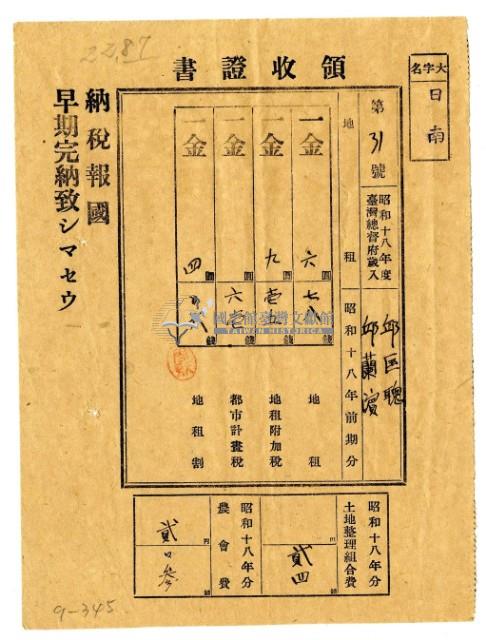 22,87
領收證書
大字名
日南
第31號
昭和十八年度
臺灣總督府歲入
邱匡聰
邱蘭濱
地租
昭和十八年前期分
一金 六圓七八錢 地租
一金 九圓壹五錢 地租附加稅
一金 圓六壹錢 都市計畫稅
一金 四圓 錢 地租割
國史館臺灣文獻館
TAIWAN HISTORICA
納稅報國
早期完納致シマセウ
昭和十八年分
土地整理組合費
圓
貳四錢
昭和十八年分
農會費
貳圓
口參錢
9-345